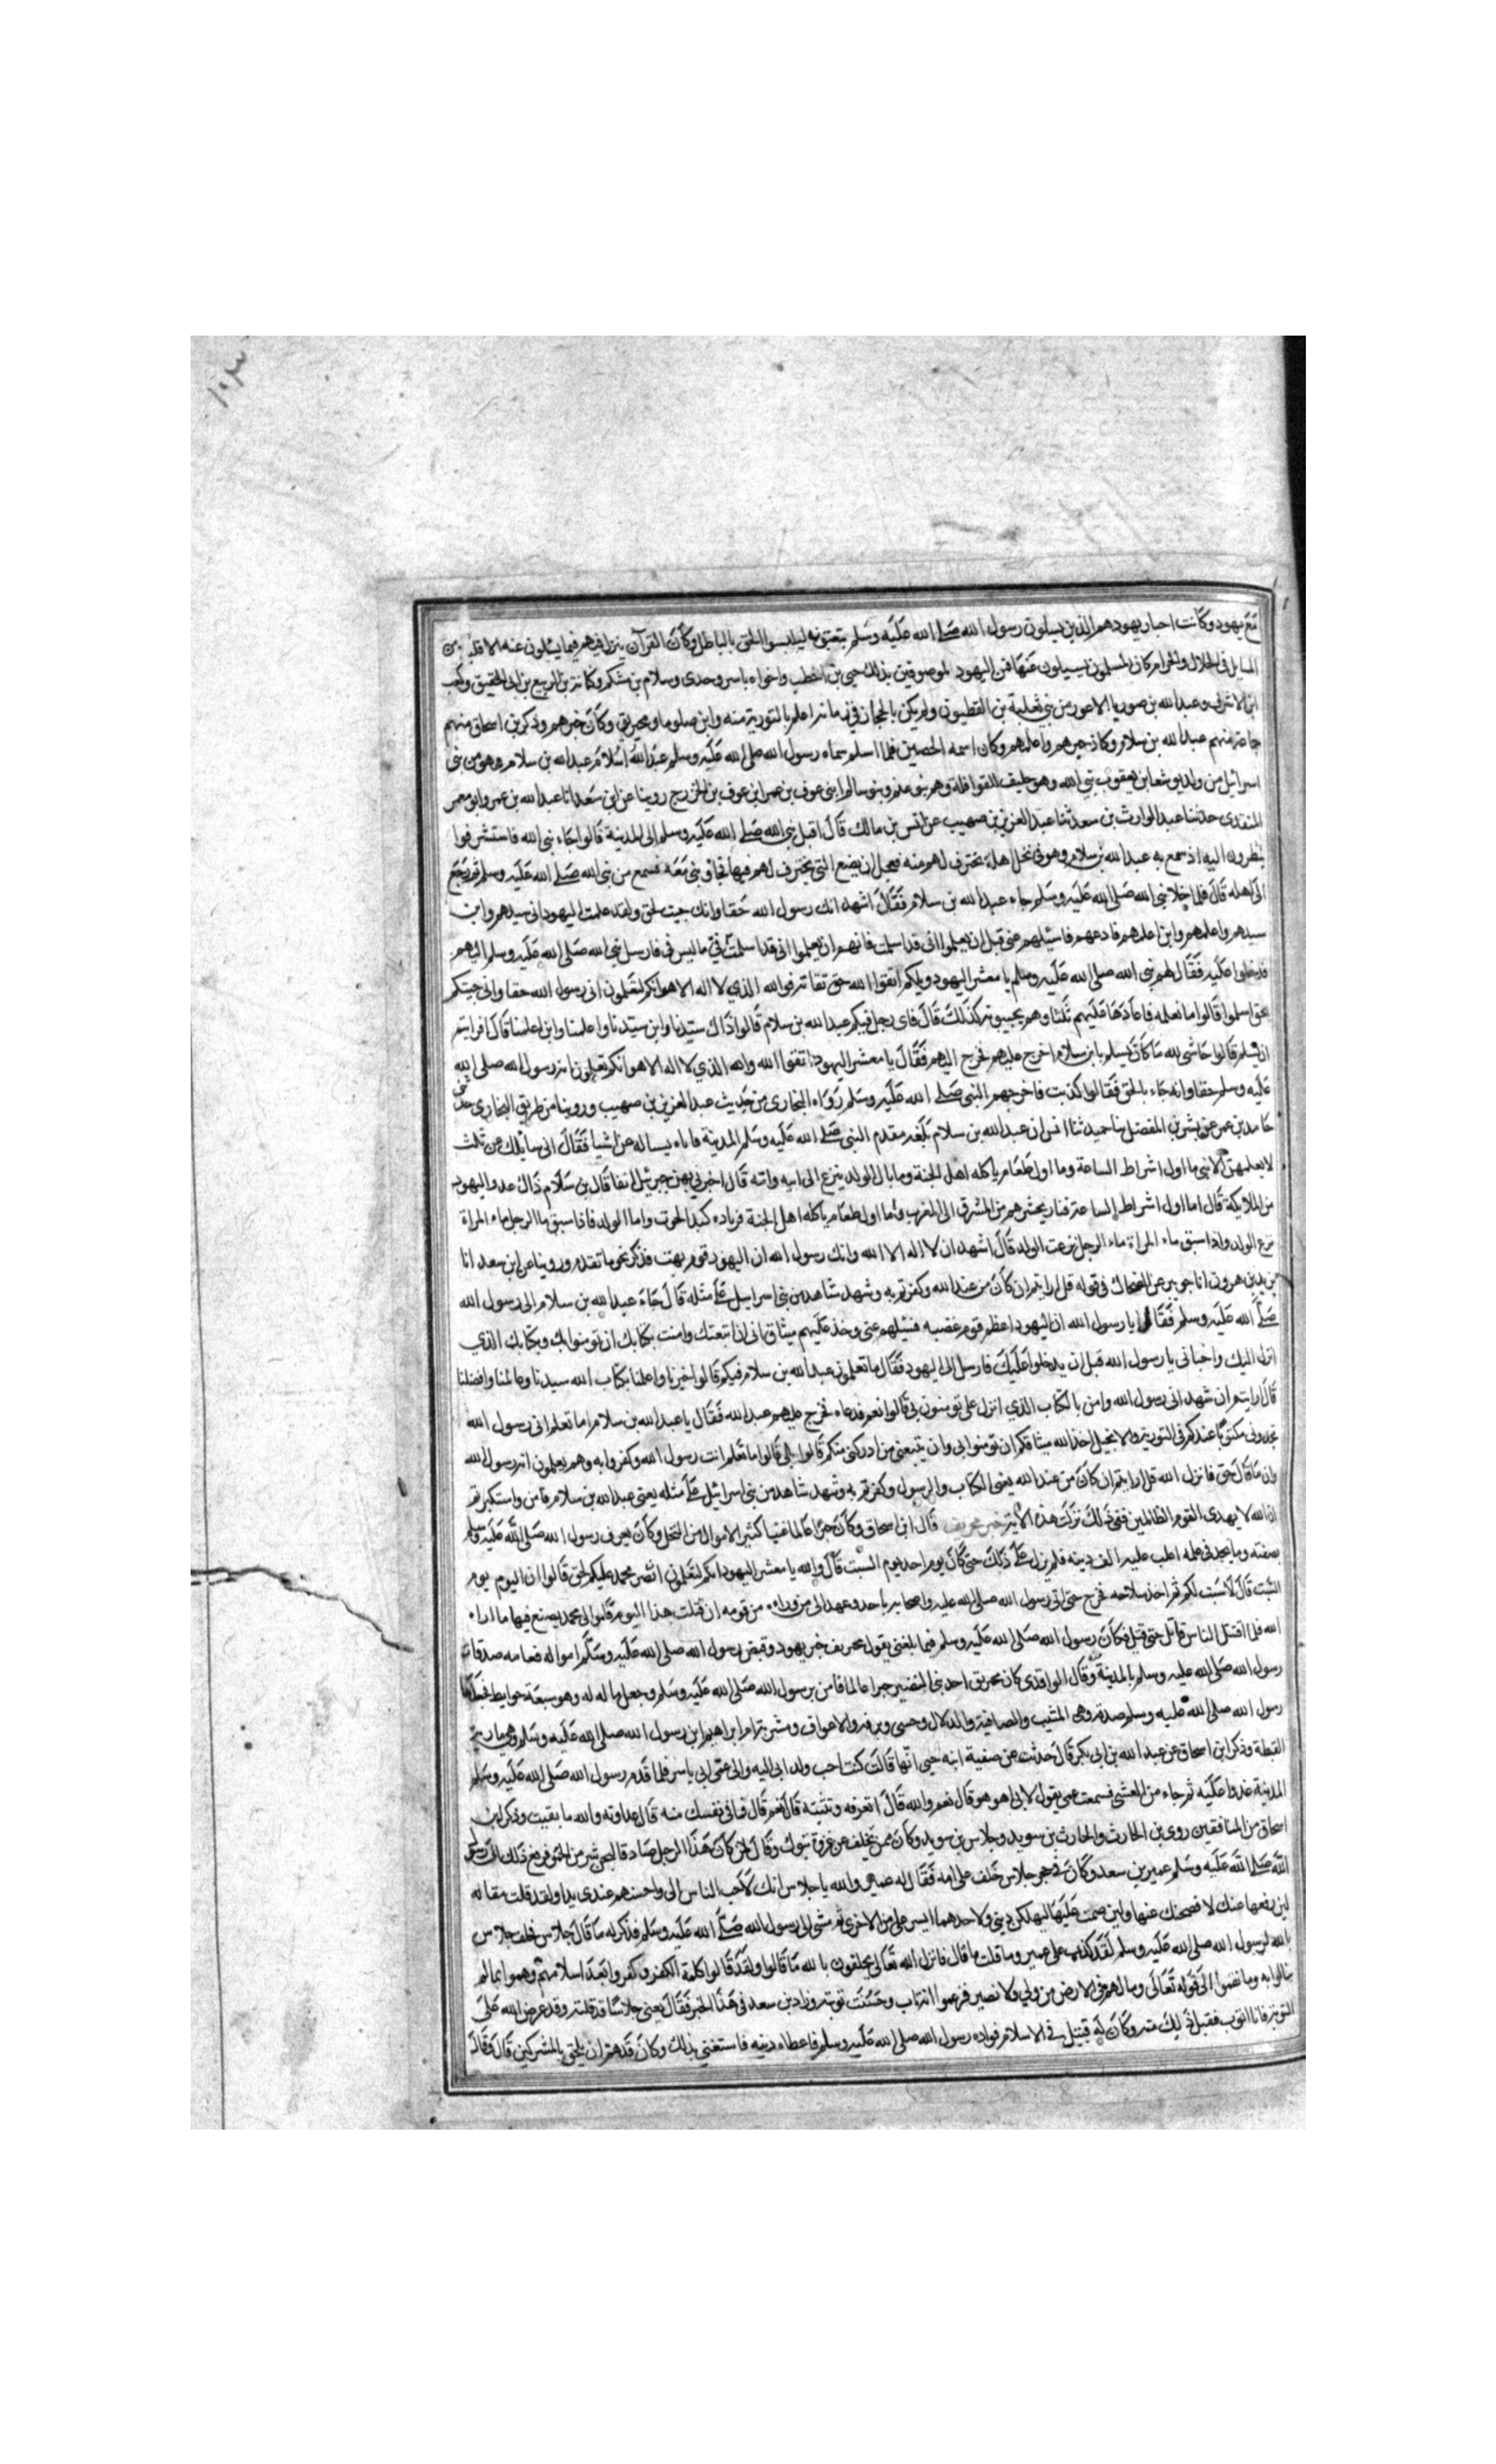 مع يهود وكانت احبار يهود هم الذين يسيلون رسول الله صلى الله عليه وسلم يتعنتونه ليلبسوا الحق بالباطل وكان القرآن ينزل فيهم فيما يسئلون عنه الا قليلا من
المسايل في الحلال والحرام كان المسلمون يسيلون عنها فمن اليهود الموصوفين بذلك حيي بن اخطب واخواه ياسر وجدي وسلام بن مشكم وكنانة بن الربيع بن ابي الحقيق وكعب
ابن الاشرف وعبد الله بن صوريا الاعور من بني ثعلبة بن الفطيون ولم يكن بالحجاز في زمانه اعلم بالتورية منه وابن صلوما ومخيريق وكان خيرهم وذكر بن اسحاق منهم
جماعة منهم عبد الله بن سلام وكان خيرهم واعلمهم وكان اسمه الحصين فلما اسلم سماه رسول الله صلى الله عليه وسلم عبد الله اسلام عبد الله بن سلام وهو من بني
اسرائيل من ولد يوشعا بن يعقوب نبي الله وهو حليف القواقلة وهم بنو غنم وبنو سالم ابني عوف بن عمرو بن عوف بن الخزرج روينا عن ابن سعد انا عبد الله بن عمرو ابو معمر
المنقدي حدثنا عبد الوارث بن سعد ثنا عبد العزيز بن صهيب عن انس بن مالك قال اقبل نبي الله صلى الله عليه وسلم الى المدينة قالوا جاء نبي الله فاستشرفوا
ينظرون اليه اذ سمع به عبد الله بن سلام وهو في نخل اهله يخترف لهم منه فعجل ان يضع التي يخترف لهم فيها فجاء وهي معه فسمع من نبي الله صلى الله عليه وسلم ثم رجع
الى اهله قال فلما خلا نبي الله صلى الله عليه وسلم جاء عبد الله بن سلام فقال اشهد انك رسول الله حقا وانك جيت بحق ولقد علمت اليهود اني سيدهم وابن
سيدهم واعلمهم وابن اعلمهم فادعهم فاسئلهم عني قبل ان يعلموا اني قد اسلمت فانهم ان يعلموا اني قد اسلمت قالوا في ما ليس في فارسل نبي الله صلى الله عليه وسلم اليهم
فدخلوا عليه فقال لهم نبي الله صلى الله عليه وسلم يا معشر اليهود ويلكم اتقوا الله حق تقاته فوالله الذي لا اله الا هو انكم لتعلمون اني رسول الله حقا واني جيتكم
بحق اسلموا قالوا ما نعلمه فاعادها عليهم ثلثا وهم يجيبونه كذلك قال فاي رجل فيكم عبد الله بن سلام قالوا ذاك سيدنا وابن سيدنا واعلمنا وابن اعلمنا قال افرايتم
ان يسلم قالوا حاشى لله ما كان يسلم يا بن سلام اخرج عليهم فخرج اليهم فقال يا معشر اليهود اتقوا الله والله الذي لا اله الا هو انكم تعلمون انه رسول الله صلى الله
عليه وسلم حقا وانه جاء بالحق فقالوا كذبت فاخرجهم النبي صلى الله عليه وسلم رواه البخاري من حديث عبد العزيز بن صهيب وروينا من طريق البخاري حدثني
حامد بن عمر عن بشر بن المفضل ثنا حميد ثنا انس ان عبد الله بن سلام بلغه مقدم النبي صلى الله عليه وسلم المدينة فاتاه يساله عن اشيا فقال اني سايلك عن ثلث
لا يعلمهن الا نبي ما اول اشراط الساعة وما اول طعام ياكله اهل الجنة وما بال الولد ينزع الى ابيه وامه قال اخبرني بهن جبرئيل انفا قال بن سلام ذاك عدو اليهود
من الملايكة قال اما اول اشراط الساعة فنار يحشرهم من المشرق الى المغرب واما اول طعام ياكله اهل الجنة فزياده كبد الحوت واما الولد فاذا سبق ما الرجل ماء المراة
نزع الولد واذا سبق ماء المراة ماء الرجل نزعت الولد قال اشهد ان لا اله الا الله وانك رسول الله ان اليهود قوم بهت فذكر نحو ما تقدم وروينا عن ابن سعد انا
يزيد بن هرون انا جويبر عن الضحاك في قوله قل ارايتم ان كان من عند الله وكفرتم به وشهد شاهد من بني اسرايل على مثله قال جاء عبد الله بن سلام الى رسول الله
صلى الله عليه وسلم فقال يا رسول الله ان اليهود اعظم قوم عضيهة فسئلهم عني وخذ عليهم ميثاقا اني ان اتبعتك وامنت بكتابك ان يومنوا بك وبكتابك الذي
انزل اليك واخباني يا رسول الله قبل ان يدخلوا عليك فارسل الى اليهود فقال ما تعلمون عبد الله بن سلام فيكم قالوا خيرنا واعلمنا بكتاب الله سيدنا وعالمنا وافضلنا
قال ارايتم ان شهد اني رسول الله وامن بالكتاب الذي انزل علي تومنون بي قالوا نعم فدعاه فخرج عليهم عبد الله فقال يا عبد الله بن سلام اما تعلم اني رسول الله
تجدوني مكتوبا عندكم في التورية والانجيل اخذ الله ميثاقكم ان تومنوا بي وان يتبعني من ادركني منكم قالوا بلى قالوا ما نعلم انت رسول الله وكفروا به وهم يعلمون انه رسول الله
وان ما قال حق فانزل الله قل ارايتم ان كان من عند الله يعني الكتاب والرسول وكفرتم به وشهد شاهد من بني اسرائيل على مثله يعني عبد الله بن سلام فامن واستكبرتم
ان الله لا يهدي القوم الظالمين ففي ذلك نزلت هذه الآية خبر مخيريق قال ابن اسحاق وكان حبرا عالما غنيا كثير الاموال من النخل وكان يعرف رسول الله صلى الله عليه وسلم
بصفته وما يجد في علمه اغلب عليه الف دينه فلم يزل على ذلك حتى كان يوم احد يوم السبت قال والله يا معشر اليهود انكم لتعلمون ان نصر محمد عليكم لحق قالوا ان اليوم يوم
السبت قال لا سبت لكم ثم اخذ سلاحه فخرج حتى اتى رسول الله صلى الله عليه واصحابه باحد وعهد الى من وراءه من قومه ان قتلت هذا اليوم فمالي الى محمد يصنع فيها ما اراه
الله فلما اقتتل الناس قاتل حتى قتل فكان رسول الله صلى الله عليه وسلم فيما بلغني يقول مخيريق خير يهود وقبض رسول الله صلى الله عليه وسلم امواله فعامه صدقات
رسول الله صلى الله عليه وسلم بالمدينة وقال الواقدي كان مخيريق احد بني النضير حبرا عالما فامن برسول الله صلى الله عليه وسلم وجعل ماله له وهو سبعة حوايط فجعلها
رسول الله صلى الله عليه وسلم صدقة وهي الميثب والصافية والدلال وحسنى وبرقة والاعواف ومشربة ام ابراهيم ابن رسول الله صلى الله عليه وسلم وهي مارية
القبطة وذكر ابن اسحاق عن عبد الله بن ابي بكر قال حدثت عن صفية ابنه حيي انها قالت كنت احب ولد ابي اليه والى عمي ابي ياسر فلما قدم رسول الله صلى الله عليه وسلم
المدينة غدوا عليه ثم جاء من العشي فسمعت عمي يقول لابي اهو هو قال نعم والله قال اتعرفه وتثبته قال نعم قال فما في نفسك منه قال عداوته والله ما بقيت وذكر ابن
اسحاق من المنافقين زوي بن الحارث والحارث بن سويد وجلاس بن سويد وكان ممن تخلف عن غزوة تبوك وقال لئن كان هذا الرجل صادقا لنحن شر من الحمر فرفع ذلك الى رسول
الله صلى الله عليه وسلم عمير بن سعد وكان في حجر جلاس خلف على امه فقال له عمير والله يا جلاس انك لاحب الناس الي واحسنهم عندي يدا ولقد قلت مقالة
لين رفعها عنك لافضحنك عنها ولين صمت عليها ليهلكن ديني ولاحدهما ايسر علي من الاخرى ثم مشى الى رسول الله صلى الله عليه وسلم فذكر له ما قال جلاس فحلف جلاس
بالله لرسول الله صلى الله عليه وسلم لقد كذب علي عمير وما قلت ما قال فانزل الله تعالى يحلفون بالله ما قالوا ولقد قالوا كلمة الكفر وكفروا بعد اسلامهم وهموا بما لم
ينالوا به وما نقموا الى قوله تعالى وما لهم في الارض من ولي ولا نصير فزعموا انه تاب وحسنت توبته وزاد بن سعد في هذا الخبر فقال يعني جلاسا قد قلته وقد عرض الله علي
التوبة فانا اتوب فقبل ذلك منه وكان له قتيل في الاسلام فواده رسول الله صلى الله عليه وسلم فاعطاه ديته فاستغنى بذلك وكان قد هم ان يلحق بالمشركين قال وقال